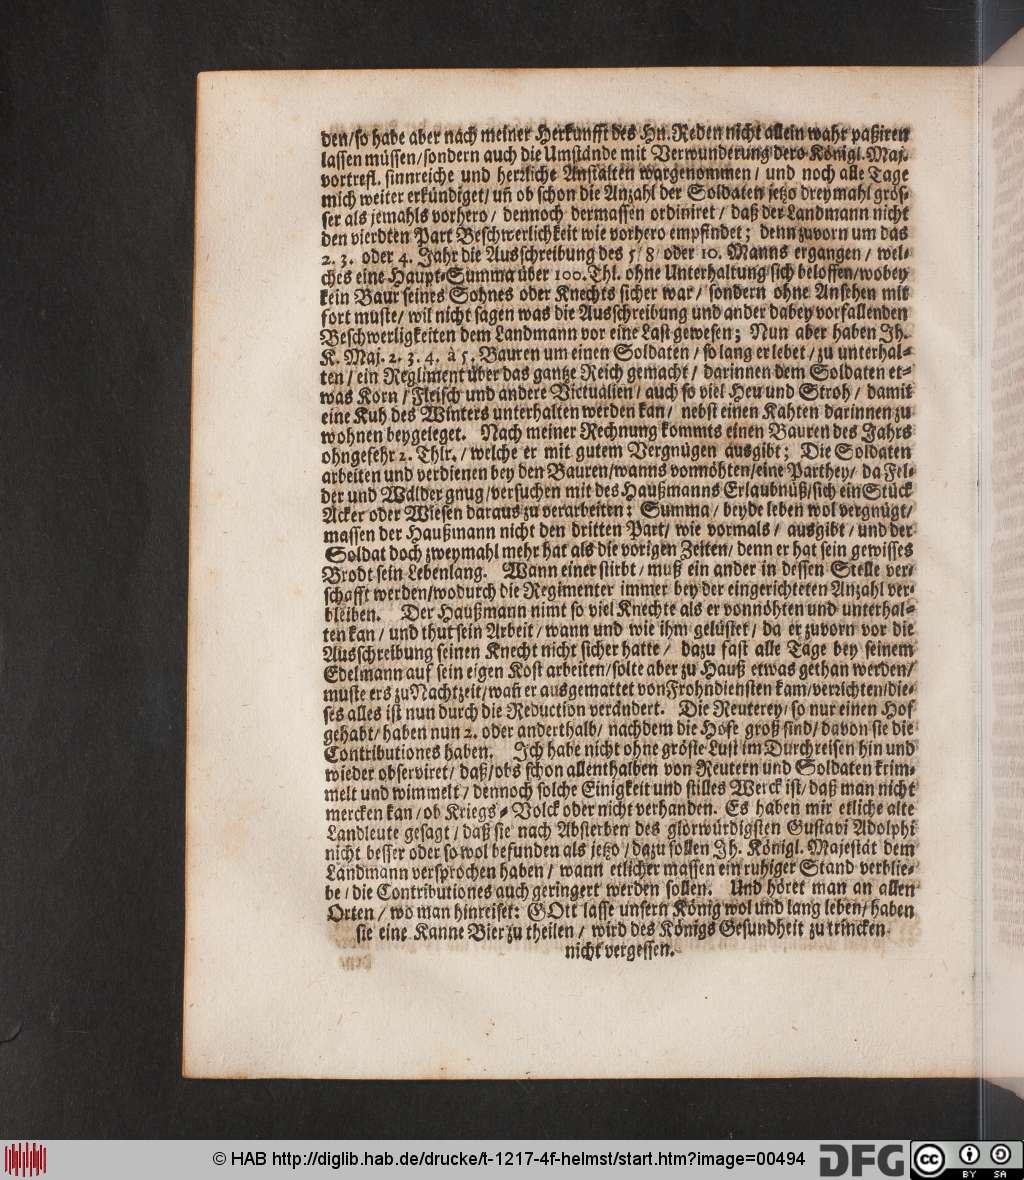 den/so habe aber nach meiner Herkunfft des Hn. Reden nicht allein wahr paßiren
lassen müssen/sondern auch die Umstände mit Verwunderung dero Königl. Maj.
vortrefl. sinnreiche und herꝛliche Anstalten wargenommen/ und noch alle Tage
mich weiter erkündiget/ uñ ob schon die Anzahl der Soldaten jetzo dreymahl grös-
ser als jemahls vorhero/ dennoch dermassen ordiniret/ daß der Landmann nicht
den vierdten Part Beschwerlichkeit wie vorhero empfindet; denn zuvorn um das
2. 3. oder 4. Jahr die Ausschreibung des 5/ 8/ oder 10. Manns ergangen/ wel-
ches eine Haupt-Summa über 100. Thl. ohne Unterhaltung sich beloffen/wobey
kein Baur seines Sohnes oder Knechts sicher war/ sondern ohne Ansehen mit
fort muste/ wil nicht sagen was die Ausschreibung und ander dabey vorfallenden
Beschwerligkeiten dem Landmann vor eine Last gewesen; Nun aber haben Jh.
K. Maj. 2. 3. 4. à 5. Bauren um einen Soldaten/ so lang er lebet/ zu unterhal-
ten/ ein Regliment über das gantze Reich gemacht/ darinnen dem Soldaten et-
was Korn/ Fleisch und andere Victualien/ auch so viel Heu und Stroh/ damit
eine Kuh des Winters unterhalten werden kan/ nebst einen Kahten darinnen zu
wohnen beygeleget. Nach meiner Rechnung kommts einen Bauren des Jahrs
ohngefehr 2. Thlr./ welche er mit gutem Vergnügen ausgibt; Die Soldaten
arbeiten und verdienen bey den Bauren/wanns vonnöhten/eine Parthey/ da Fel-
der und Wälder gnug/versuchen mit des Haußmanns Erlaubnüß/sich ein Stück
Acker oder Wiesen daraus zu verarbeiten: Summa/ beyde leben wol vergnügt/
massen der Haußmann nicht den dritten Part/ wie vormals/ ausgibt/ und der
Soldat doch zweymahl mehr hat als die vorigen Zeiten/ denn er hat sein gewisses
Brodt sein Lebenlang. Wann einer stirbt/ muß ein ander in dessen Stelle ver-
schafft werden/wodurch die Regimenter immer bey der eingerichteten Anzahl ver-
bleiben. Der Haußmann nimt so viel Knechte als er vonnöhten und unterhal-
ten kan/ und thut sein Arbeit/ wann und wie ihm gelüstet/ da er zuvorn vor die
Ausschreibung seinen Knecht nicht sicher hatte/ dazu fast alle Tage bey seinem
Edelmann auf sein eigen Kost arbeiten/solte aber zu Hauß etwas gethan werden/
muste ers zu Nachtzeit/wañ er ausgemattet von Frohndiensten kam/verꝛichten/die-
ses alles ist nun durch die Reduction verändert. Die Reuterey/ so nur einen Hof
gehabt/ haben nun 2. oder anderthalb/ nachdem die Höfe groß sind/ davon sie die
Contributiones haben. Jch habe nicht ohne gröste Lust im Durchreisen hin und
wieder observiret/ daß/obs schon allenthalben von Reutern und Soldaten krim-
melt und wimmelt/ dennoch solche Einigkeit und stilles Werck ist/ daß man nicht
mercken kan/ ob Kriegs-Volck oder nicht verhanden. Es haben mir etliche alte
Landleute gesagt/ daß sie nach Absterben des glorwürdigsten Gustavi Adolphi
nicht besser oder so wol befunden als jetzo/ dazu sollen Jh. Königl. Majestät dem
Landmann versprochen haben/ wann etlicher massen ein ruhiger Stand verblie-
be/ die Contributiones auch geringert werden sollen. Und höret man an allen
Orten/ wo man hinreiset: GOtt lasse unsern König wol und lang leben/ haben
sie eine Kanne Bier zu theilen/ wird des Königs Gesundheit zu trincken
nicht vergessen.
© HAB http://diglib.hab.de/drucke/t-1217-4f-helmst/start.htm?image=00494
DFG
cc BY SA